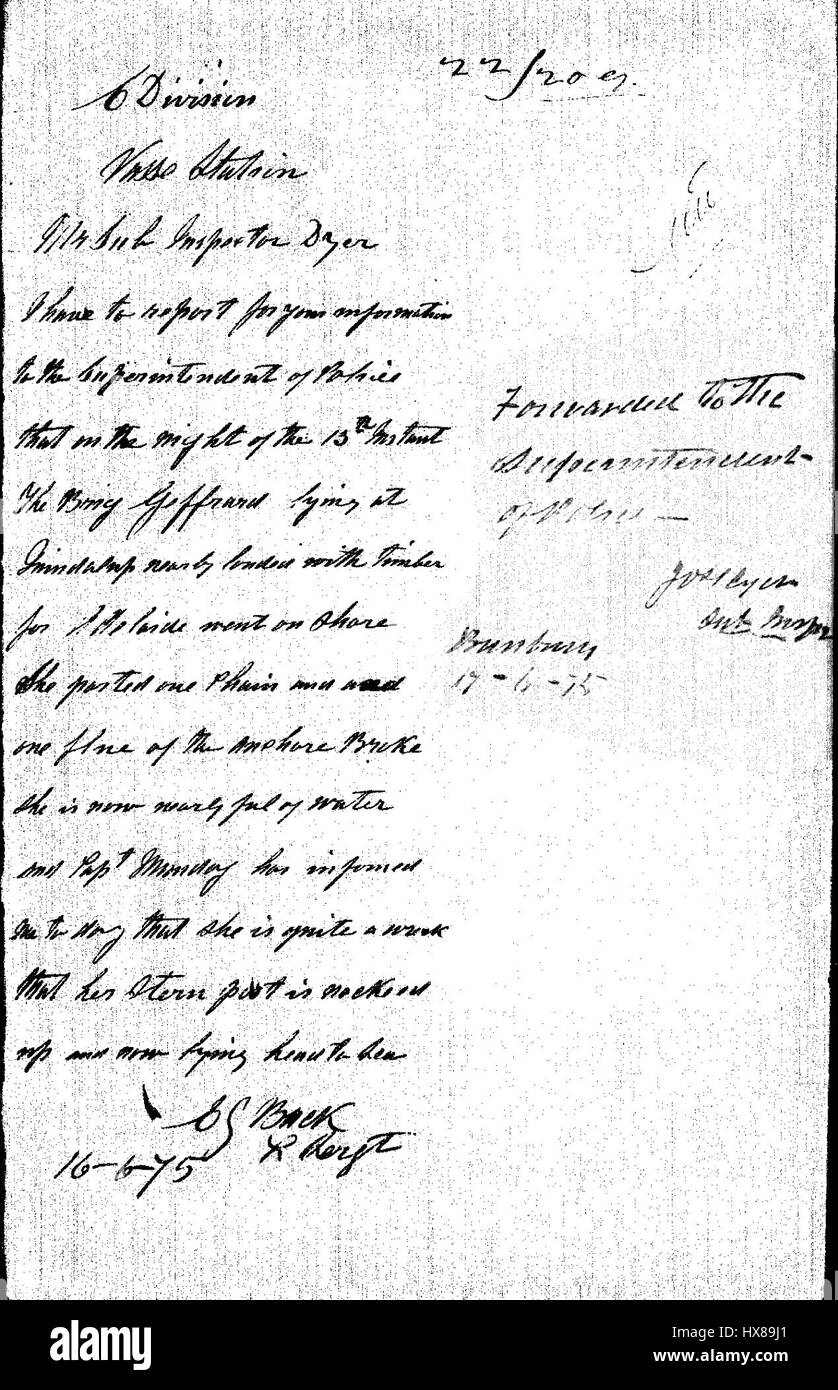 22/209
6 Division
Vasse Station
Mr Sub Inspector Dyer
I have to report for your information
to the Superintendent of Police
that on the night of the 13th Instant
The Brig Geffrard lying at
Quindalup nearly loaded with timber
for Adelaide went on shore
She parted one Chain and and
one flue of the anchore Broke
she is now nearly ful of water
and Capt Munday has infomed
me to day that she is quite a wreck
that her Stern post is nocked
up and now lying head to Sea
Back
L Sergt
16-6-75
Forwarded to the
Superintendent
of Police —
Jos Dyer
Sub Inspr
Bunbury
17-6-75
alamy
alamy
Image ID: HX89J1
www.alamy.com